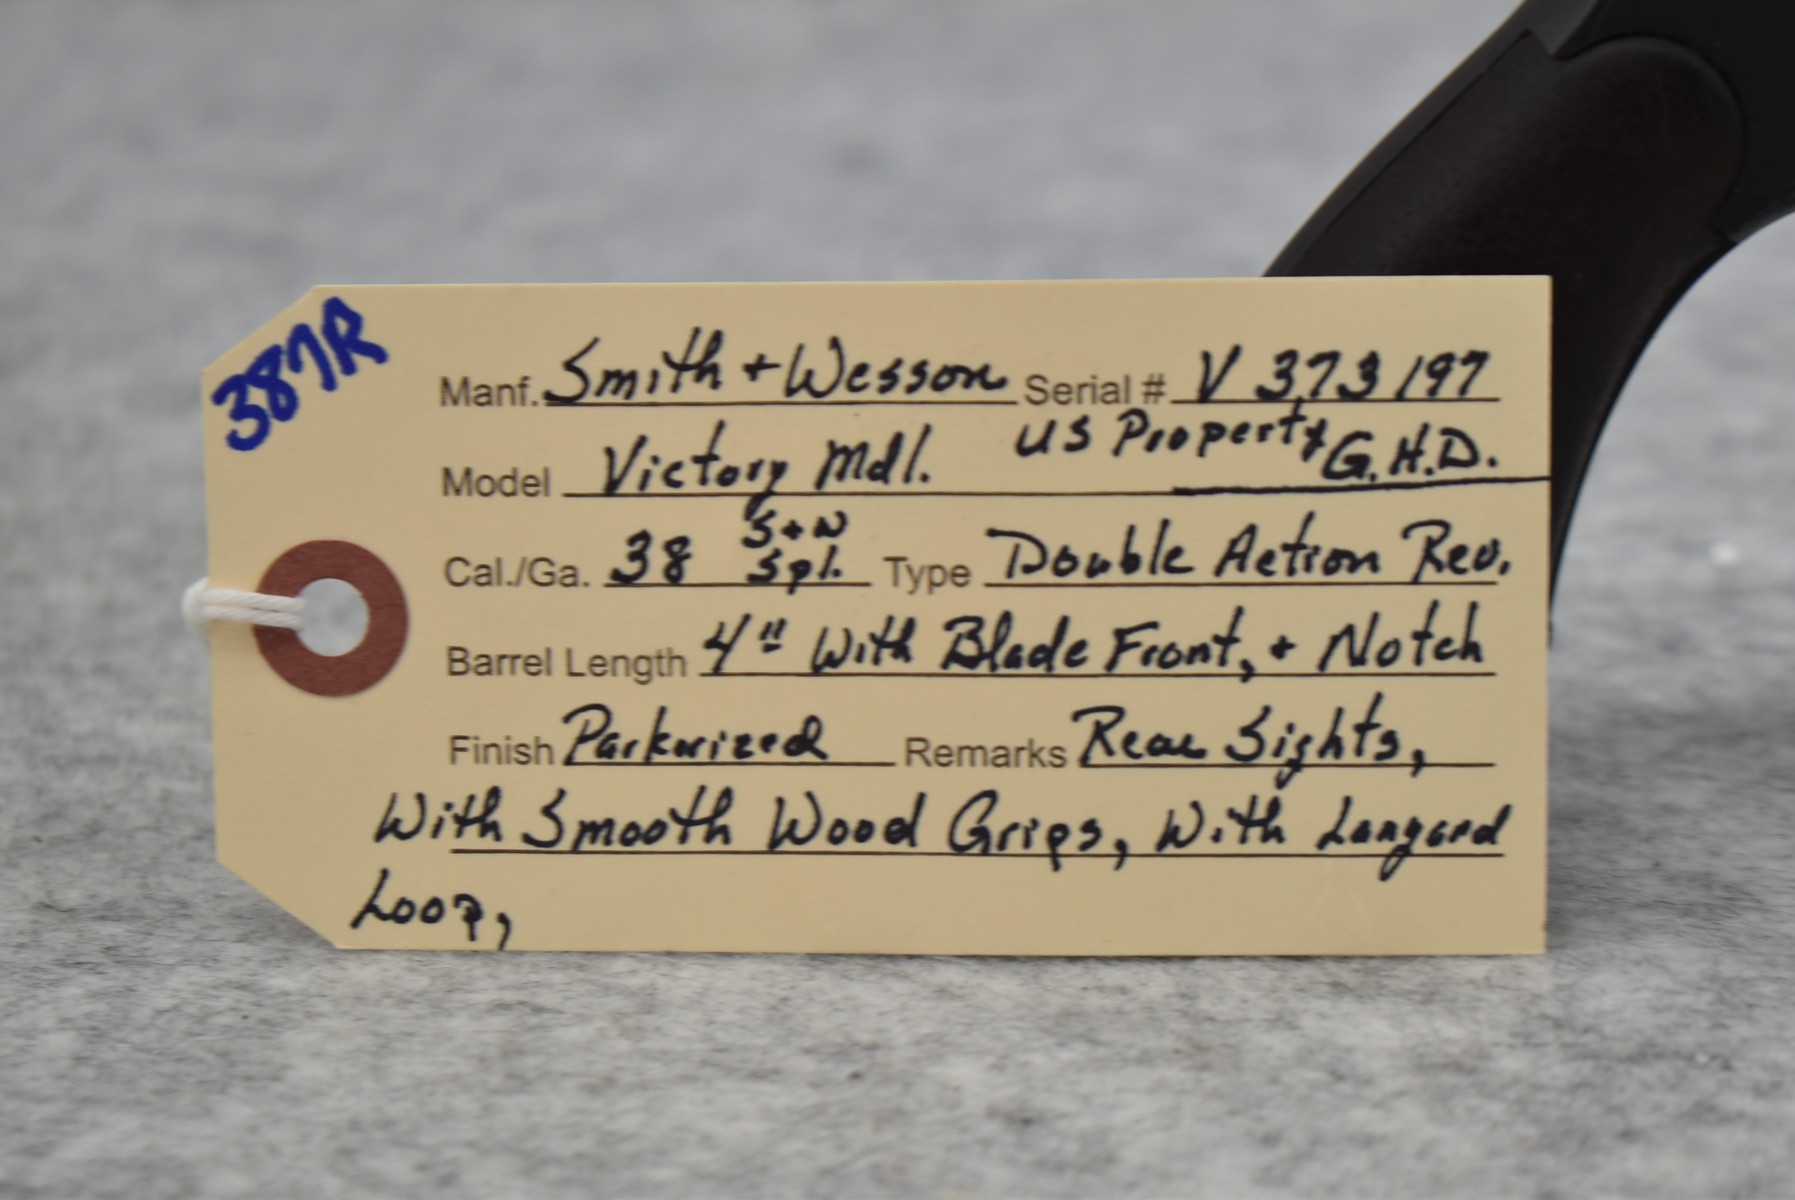 387R
Manf. Smith + Wesson Serial # V 373197
US Property G.H.D.
Model Victory Mdl.
Cal./Ga. 38 S+W Spl. Type Double Action Rev.
Barrel Length 4" With Blade Front, + Notch
Finish Parkerized Remarks Rear Sights,
With Smooth Wood Grips, With Lanyard
Loop,